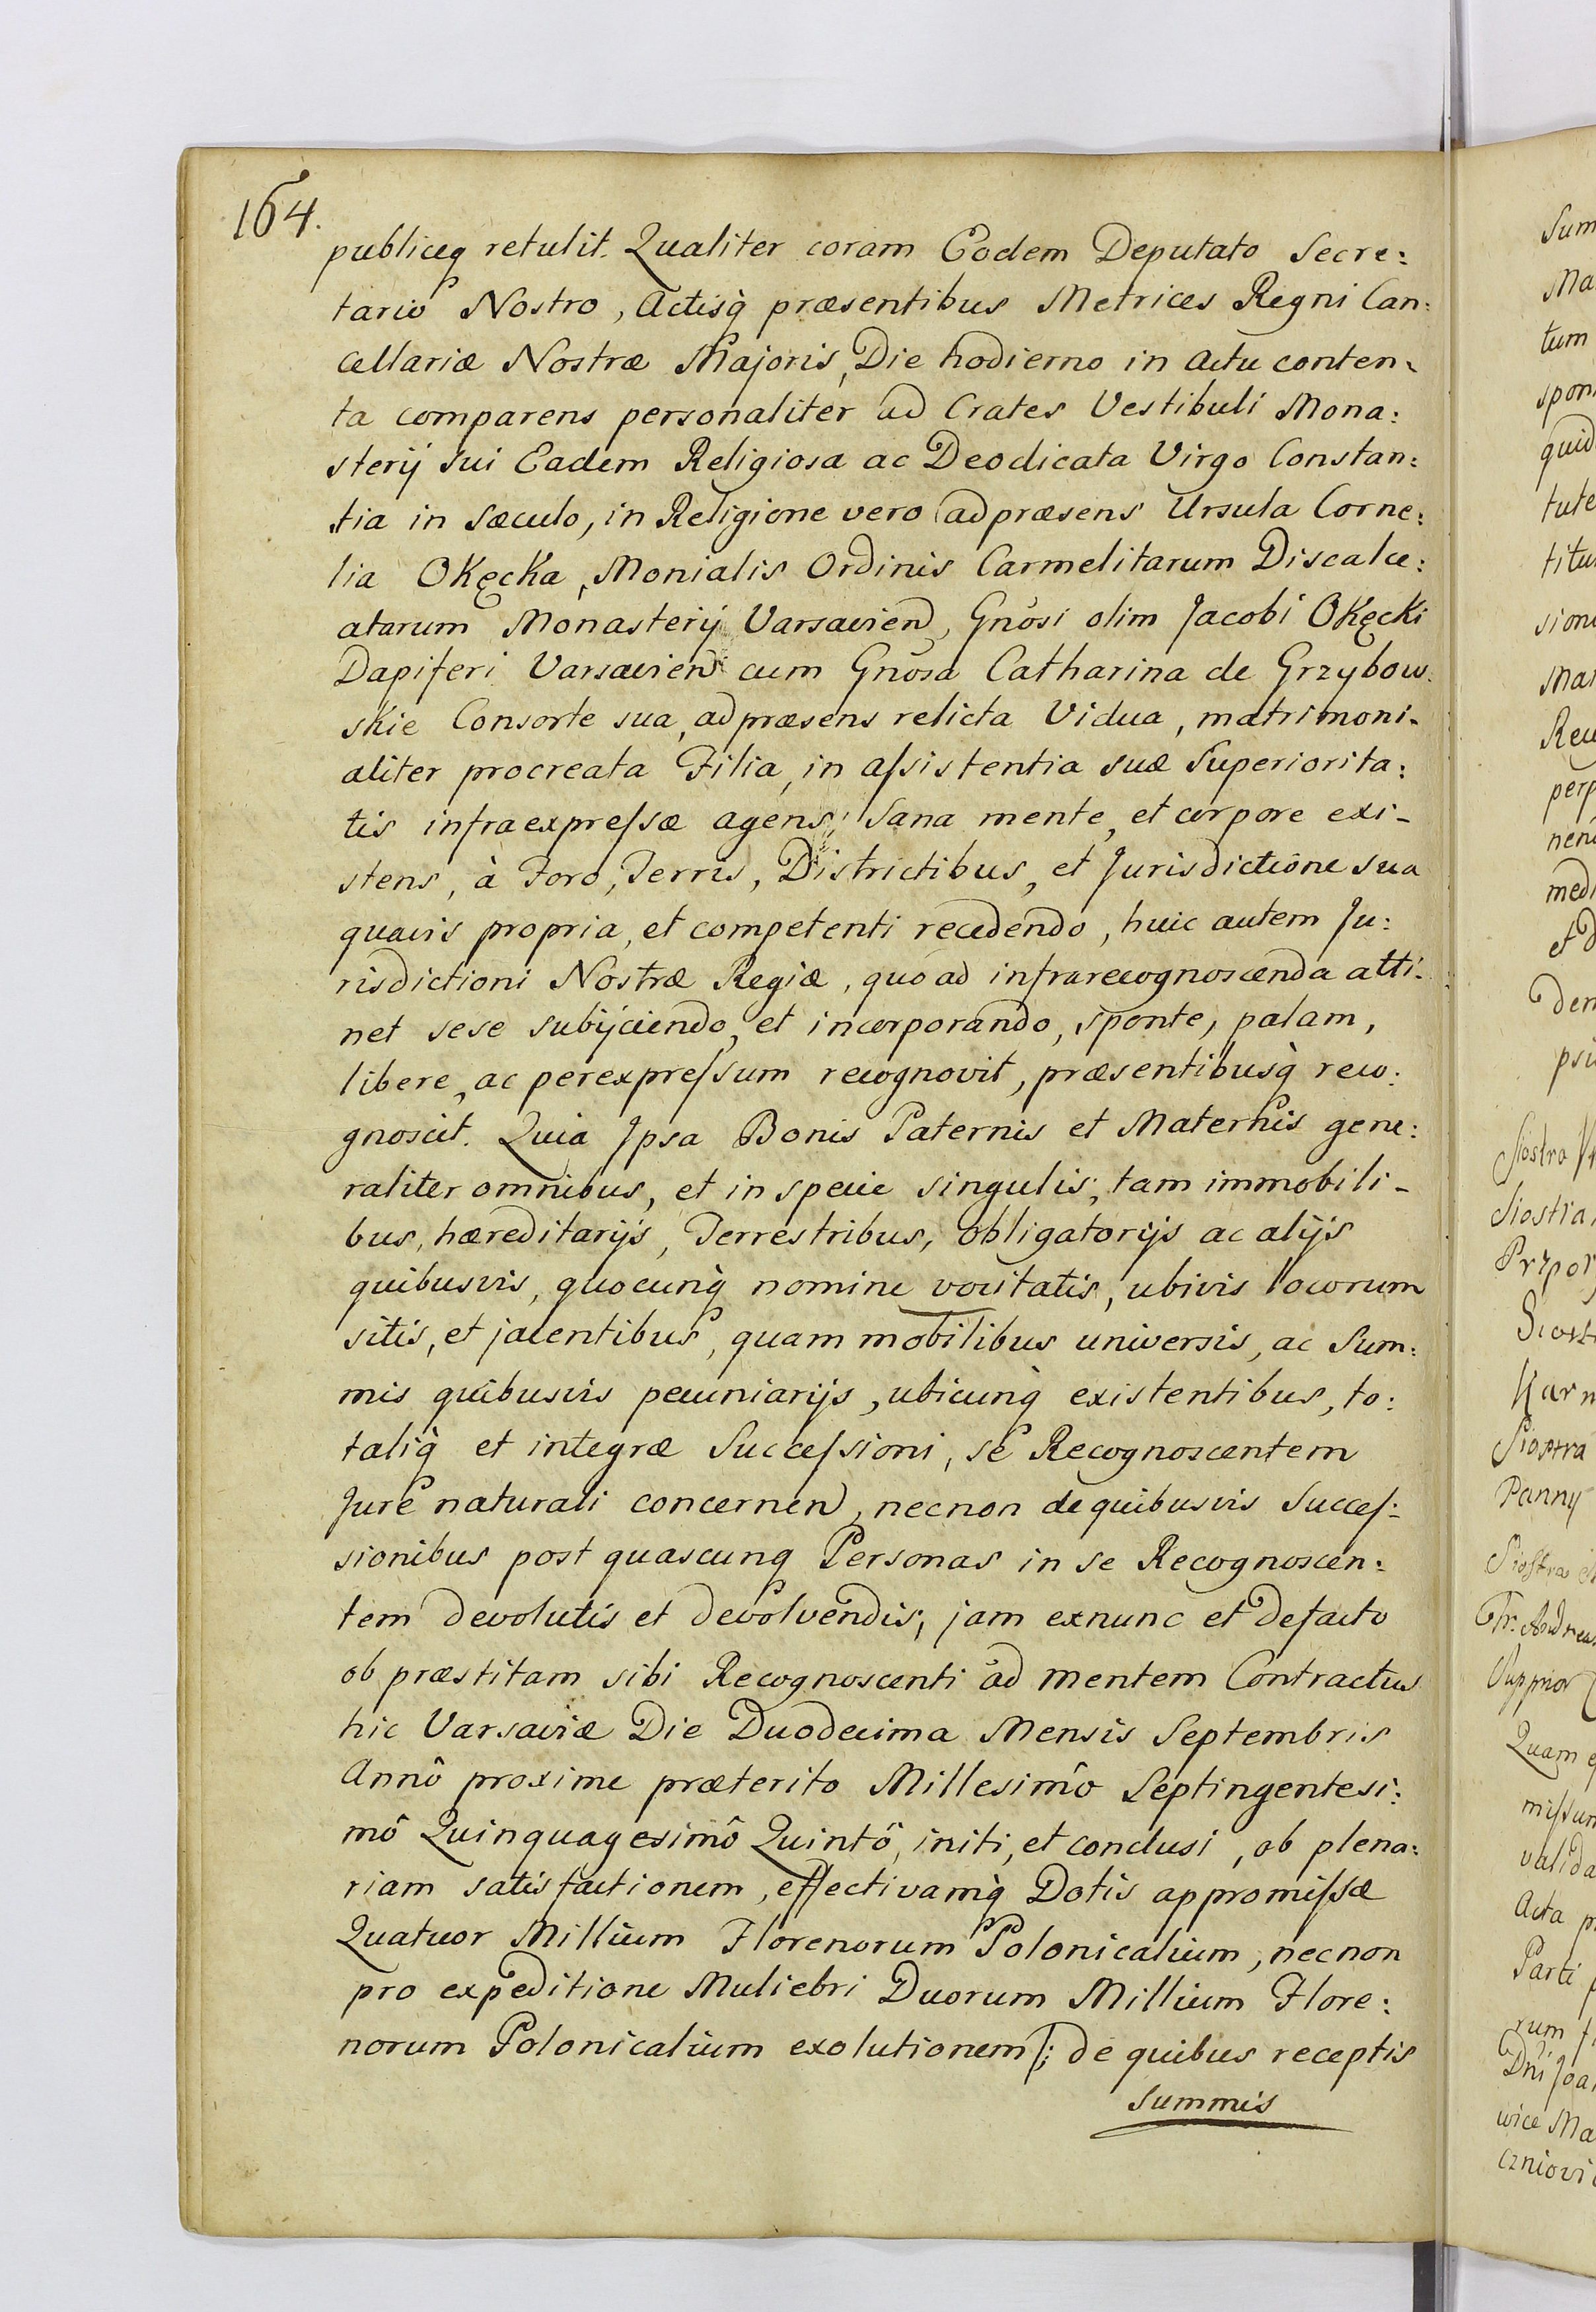 164.
publiceq retulit. Qualiter coram Eodem Deputato Secre:
tario Nostro, Actisq̀ præsentibus Metrices Regni Can:
cellariæ Nostræ Majoris, Die hodierno in actu conten:
ta comparens personaliter ad Crates Vestibuli Mona:
sterij sui Eadem Religiosa ac Deodicata Virgo Constan:
tia in Sæculo, in Religione vero adpræsens Ursula Corne:
lia Okęcka, Monialis Ordinis Carmelitarum Discalce:
atarum Monasterij Varsavien, Gnôsi olim Jacobi Okęcki
Dapiferi Varsavien cum Gnôsa Catharina de Grzybow:
skie Consorte sua, adpræsens relicta Vidua, matrimoni-
aliter procreata Filia, in aſsistentia suæ Superiorita:
tis infraexpreſsæ agens, Sana mente, et corpore exi-
stens, à Foro, Terris, Districtibus, et Jurisdictione sua
quavis propria, et competenti recedendo, huic autem Ju:
risdictioni Nostræ Regiæ, quo ad infrarecognoscenda atti:
net sese subijciendo, et incorporando, sponte, palam,
libere, ac perexpreſsum recognovit, præsentibusq̀ reco:
gnoscit. Quia Ipsa Bonis Paternis et Maternis gene:
raliter omnibus, et in specie singulis, tam immobili-
bus, hæreditarijs, Terrestribus, obligatorijs ac alijs
quibusvis, quocunq̀ nomine vocitatis, ubivis locorum
sitis, et jacentibus, quam mobilibus universis, ac Sum:
mis quibusvis pecuniarijs, ubicunq̀ existentibus, to:
taliq̀ et integræ Succeſsioni, se Recognoscentem
Jure naturali concernen, necnon de quibusvis Succeſ:
sionibus post quascunq Personas in se Recognoscen:
tem devolutis et devolvendis, jam exnunc et defacto
ob præstitam sibi Recognoscenti ad mentem Contractus
hic Varsaviæ Die Duodecima Mensis Septembris
Annô proxime præterito Millesimô Septingentesi:
mô Quinquagesimô Quintô, initi, et conclusi, ob plena:
riam satisfactionem, effectivamq̀ Dotis appromiſsæ
Quatuor Millium Florenorum Polonicalium, necnon
pro expeditione Muliebri Duorum Millium Flore:
norum Polonicalium exolutionem /: de quibus receptis
summis
Sum
Ma
tum
spon
quid
tute
titu
sion
Mat
Rev
perp
nen
medi
et D
Den
psi
Siostra
Siostra
Przor
Siost
Karm
Siostra
Panny
Siostra
Fr. Andreas
Supprior
Quam
miſsum
valida
Acta
Parti
rum
Dni Joa
wice Ma
czniovi